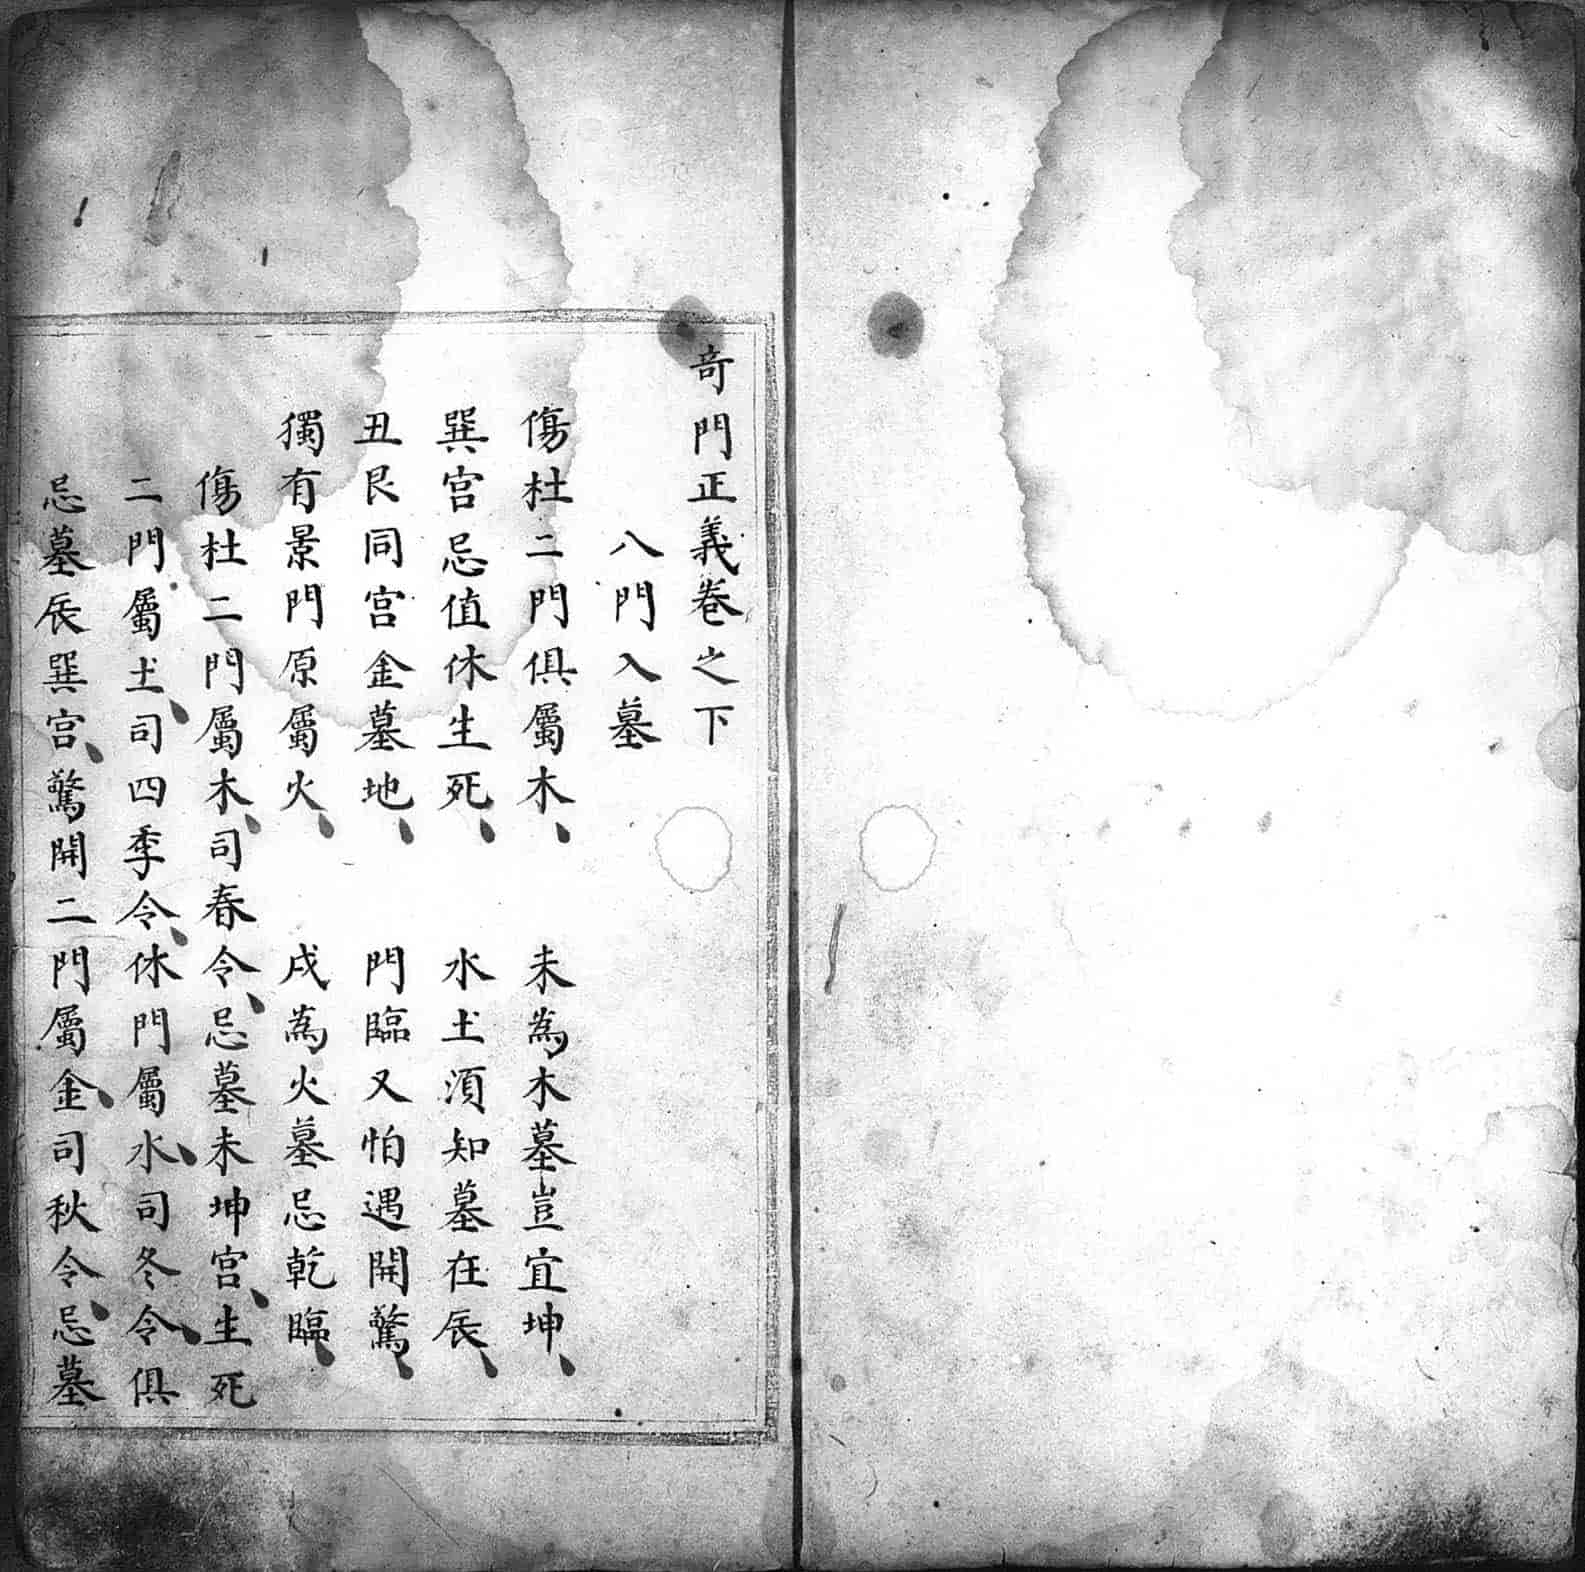 奇門正義卷之下
八門入墓
傷杜二門俱屬木、　未為木墓豈宜坤、
巽宮忌值休生死、　水土須知墓在辰、
丑艮同宮金墓地、　門臨又怕遇開驚、
獨有景門原屬火、　戌為火墓忌乾臨、
傷杜二門屬木、司春令、忌墓未坤宮、生死
二門屬土、司四季令、休門屬水、司冬令、俱
忌墓辰巽宮、驚開二門屬金、司秋令、忌墓